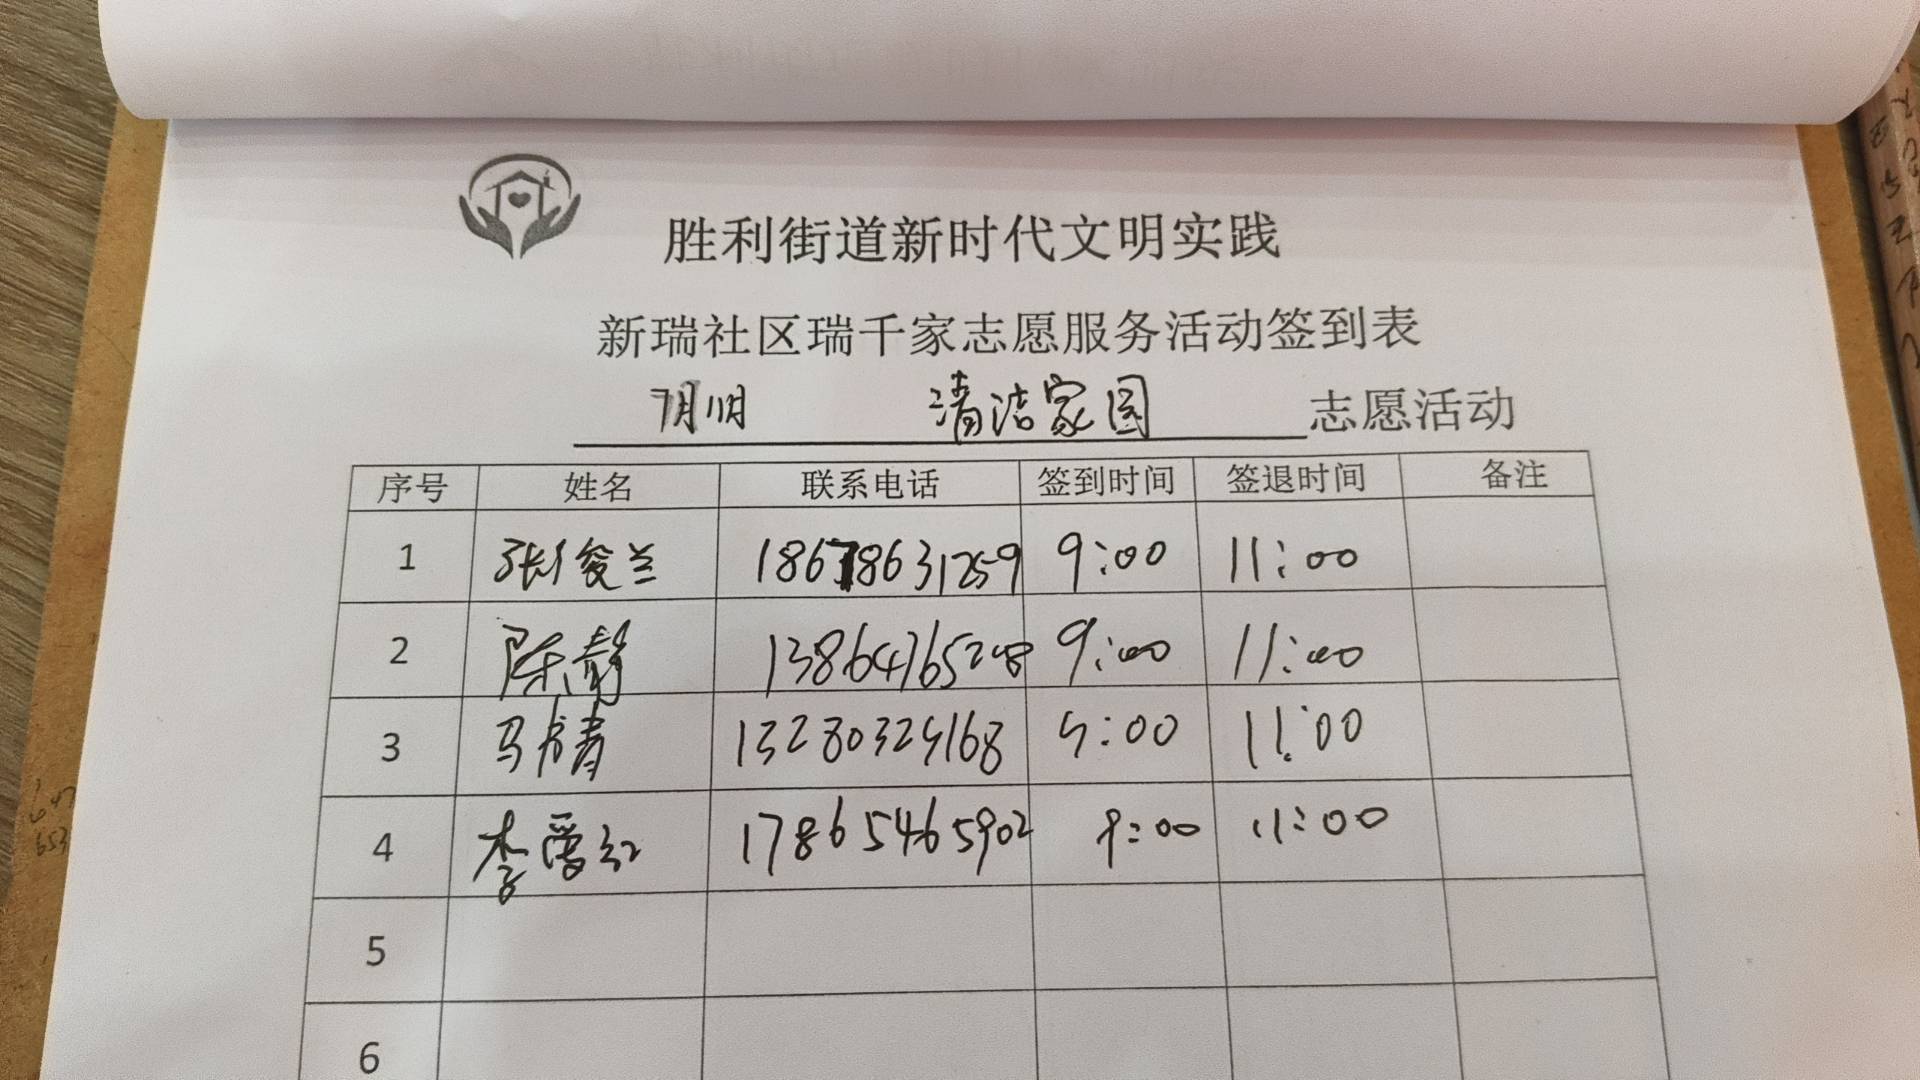 胜利街道新时代文明实践
新瑞社区瑞千家志愿服务活动签到表
7月11日 清洁家园 志愿活动
序号 姓名 联系电话 签到时间 签退时间 备注
1 张俊兰 18678631259 9:00 11:00
2 陈静 13864765248 9:00 11:00
3 马 13280324168 9:00 11:00
4 李 红 17865465902 9:00 11:00
5
6